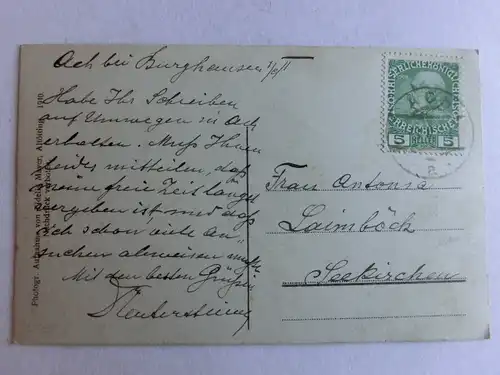 Ach bei Burghausen 1/9 11
Habe Ihr Schreiben
auf Umwegen in Ach
erhalten. Muß Ihnen
leider mitteilen, daß
meine freie Zeit längst
vergeben ist und daß
ich schon viele An-
suchen abweisen mußte.
Mit den besten Grüßen
Frau Antonia
Laimböck
Seekirchen
Photogr. Aufnahme von Adele Mayer, Altötting. 1910.
Nachdruck verboten.
5 5
ACH